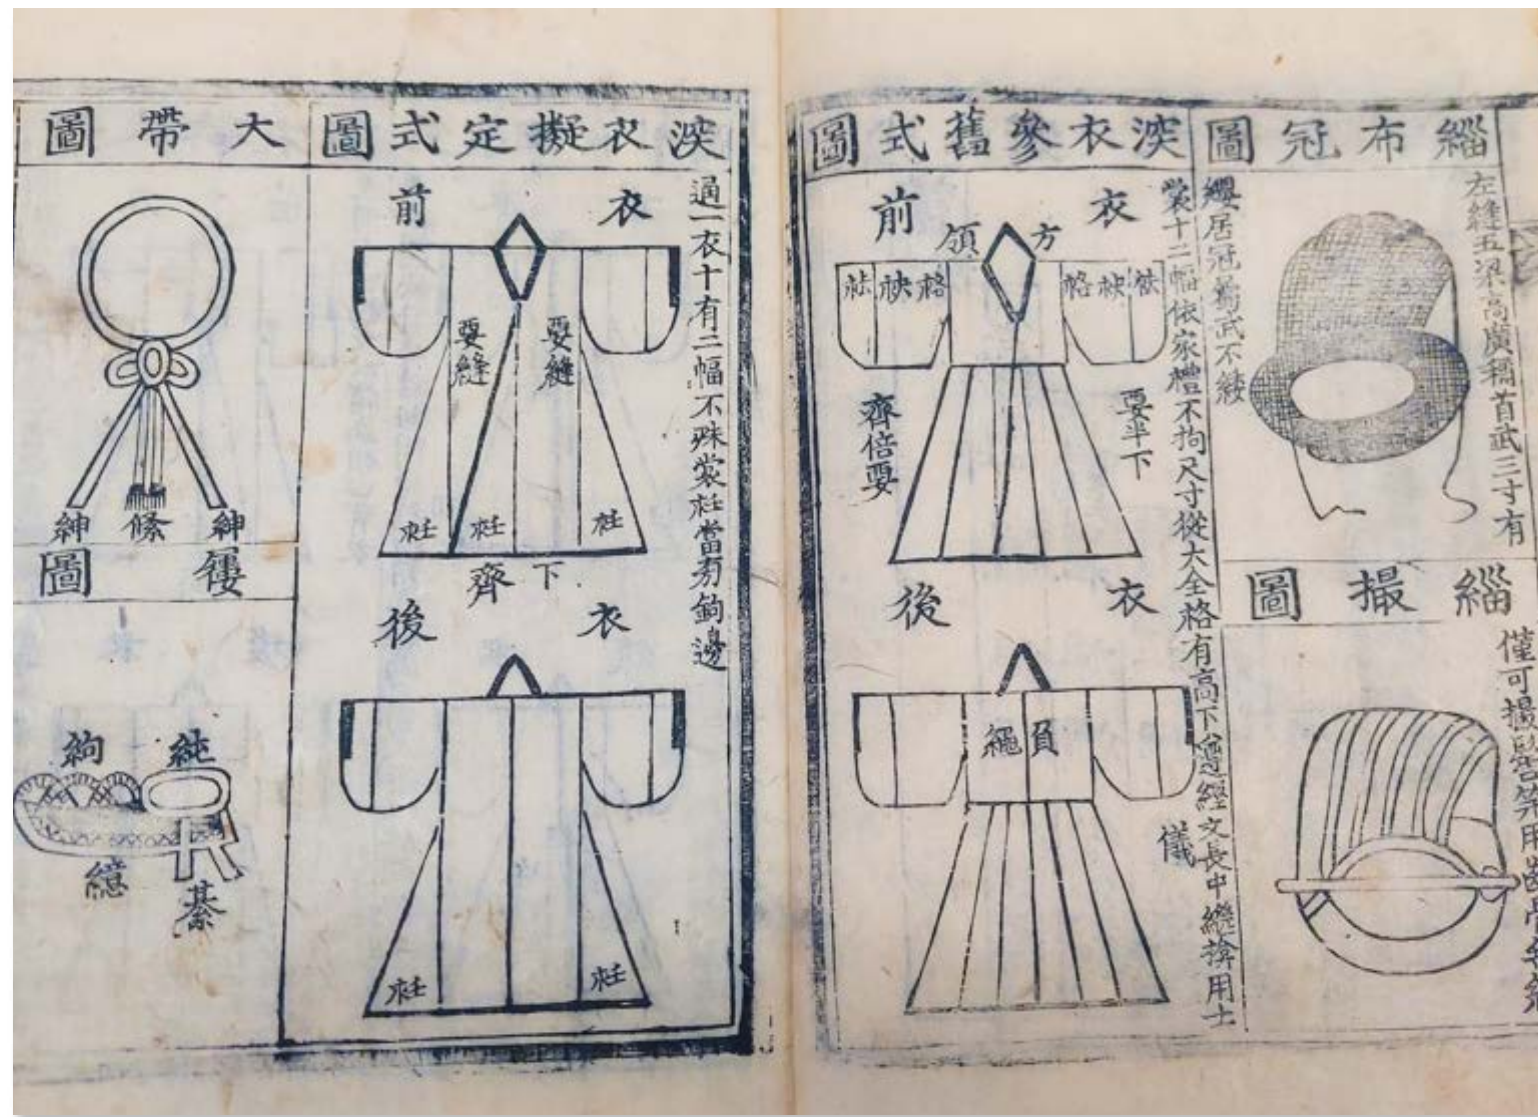 緇布冠圖
左縫五梁高廣稱首武三寸有
纓居冠武不緌
緇撮圖
僅可撮髻笄用齒
深衣參舊式圖
裳十二幅依家禮不拘尺寸從大全袼有高下遵經文長中繼揜用士
儀
衣前
方領
袪袂袼
袼袂袪
要半下
齊倍要
衣後
負繩
深衣擬定式圖
通一衣十有二幅不殊裳衽當旁鉤邊
衣前
要縫
要縫
衽
衽
衽
下齊
衣後
衽
衽
大帶圖
紳
絛
紳
屨圖
純
絇
繶
綦